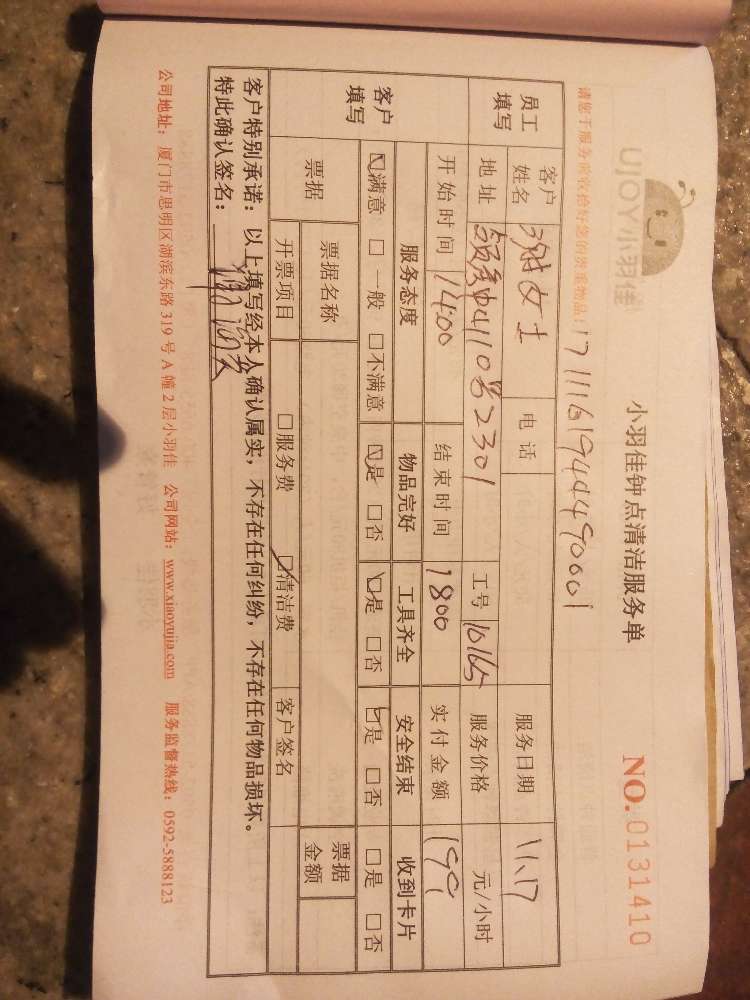 UJOY小羽佳
小羽佳钟点清洁服务单
NO.0131410
请您于服务前收拾好您的贵重物品!
17111619444490001
员工填写
客户姓名 谢女士 电话 服务日期 11.17
地址 2301 工号 10165 服务价格 元/小时
开始时间 1400 结束时间 1800 实付金额 199
客户填写
服务态度 物品完好 工具齐全 安全结束 收到卡片
☑满意 □一般 □不满意 ☑是 □否 ☑是 □否 ☑是 □否 □是 □否
票据 票据名称 票据金额
开票项目 □服务费 ☑清洁费 客户签名
客户特别承诺:以上填写经本人确认属实,不存在任何纠纷,不存在任何物品损坏。
特此确认签名:
公司地址:厦门市思明区湖滨东路319号A幢2层小羽佳 公司网站:www.xiaoyujia.com 服务监督热线:0592-5888123